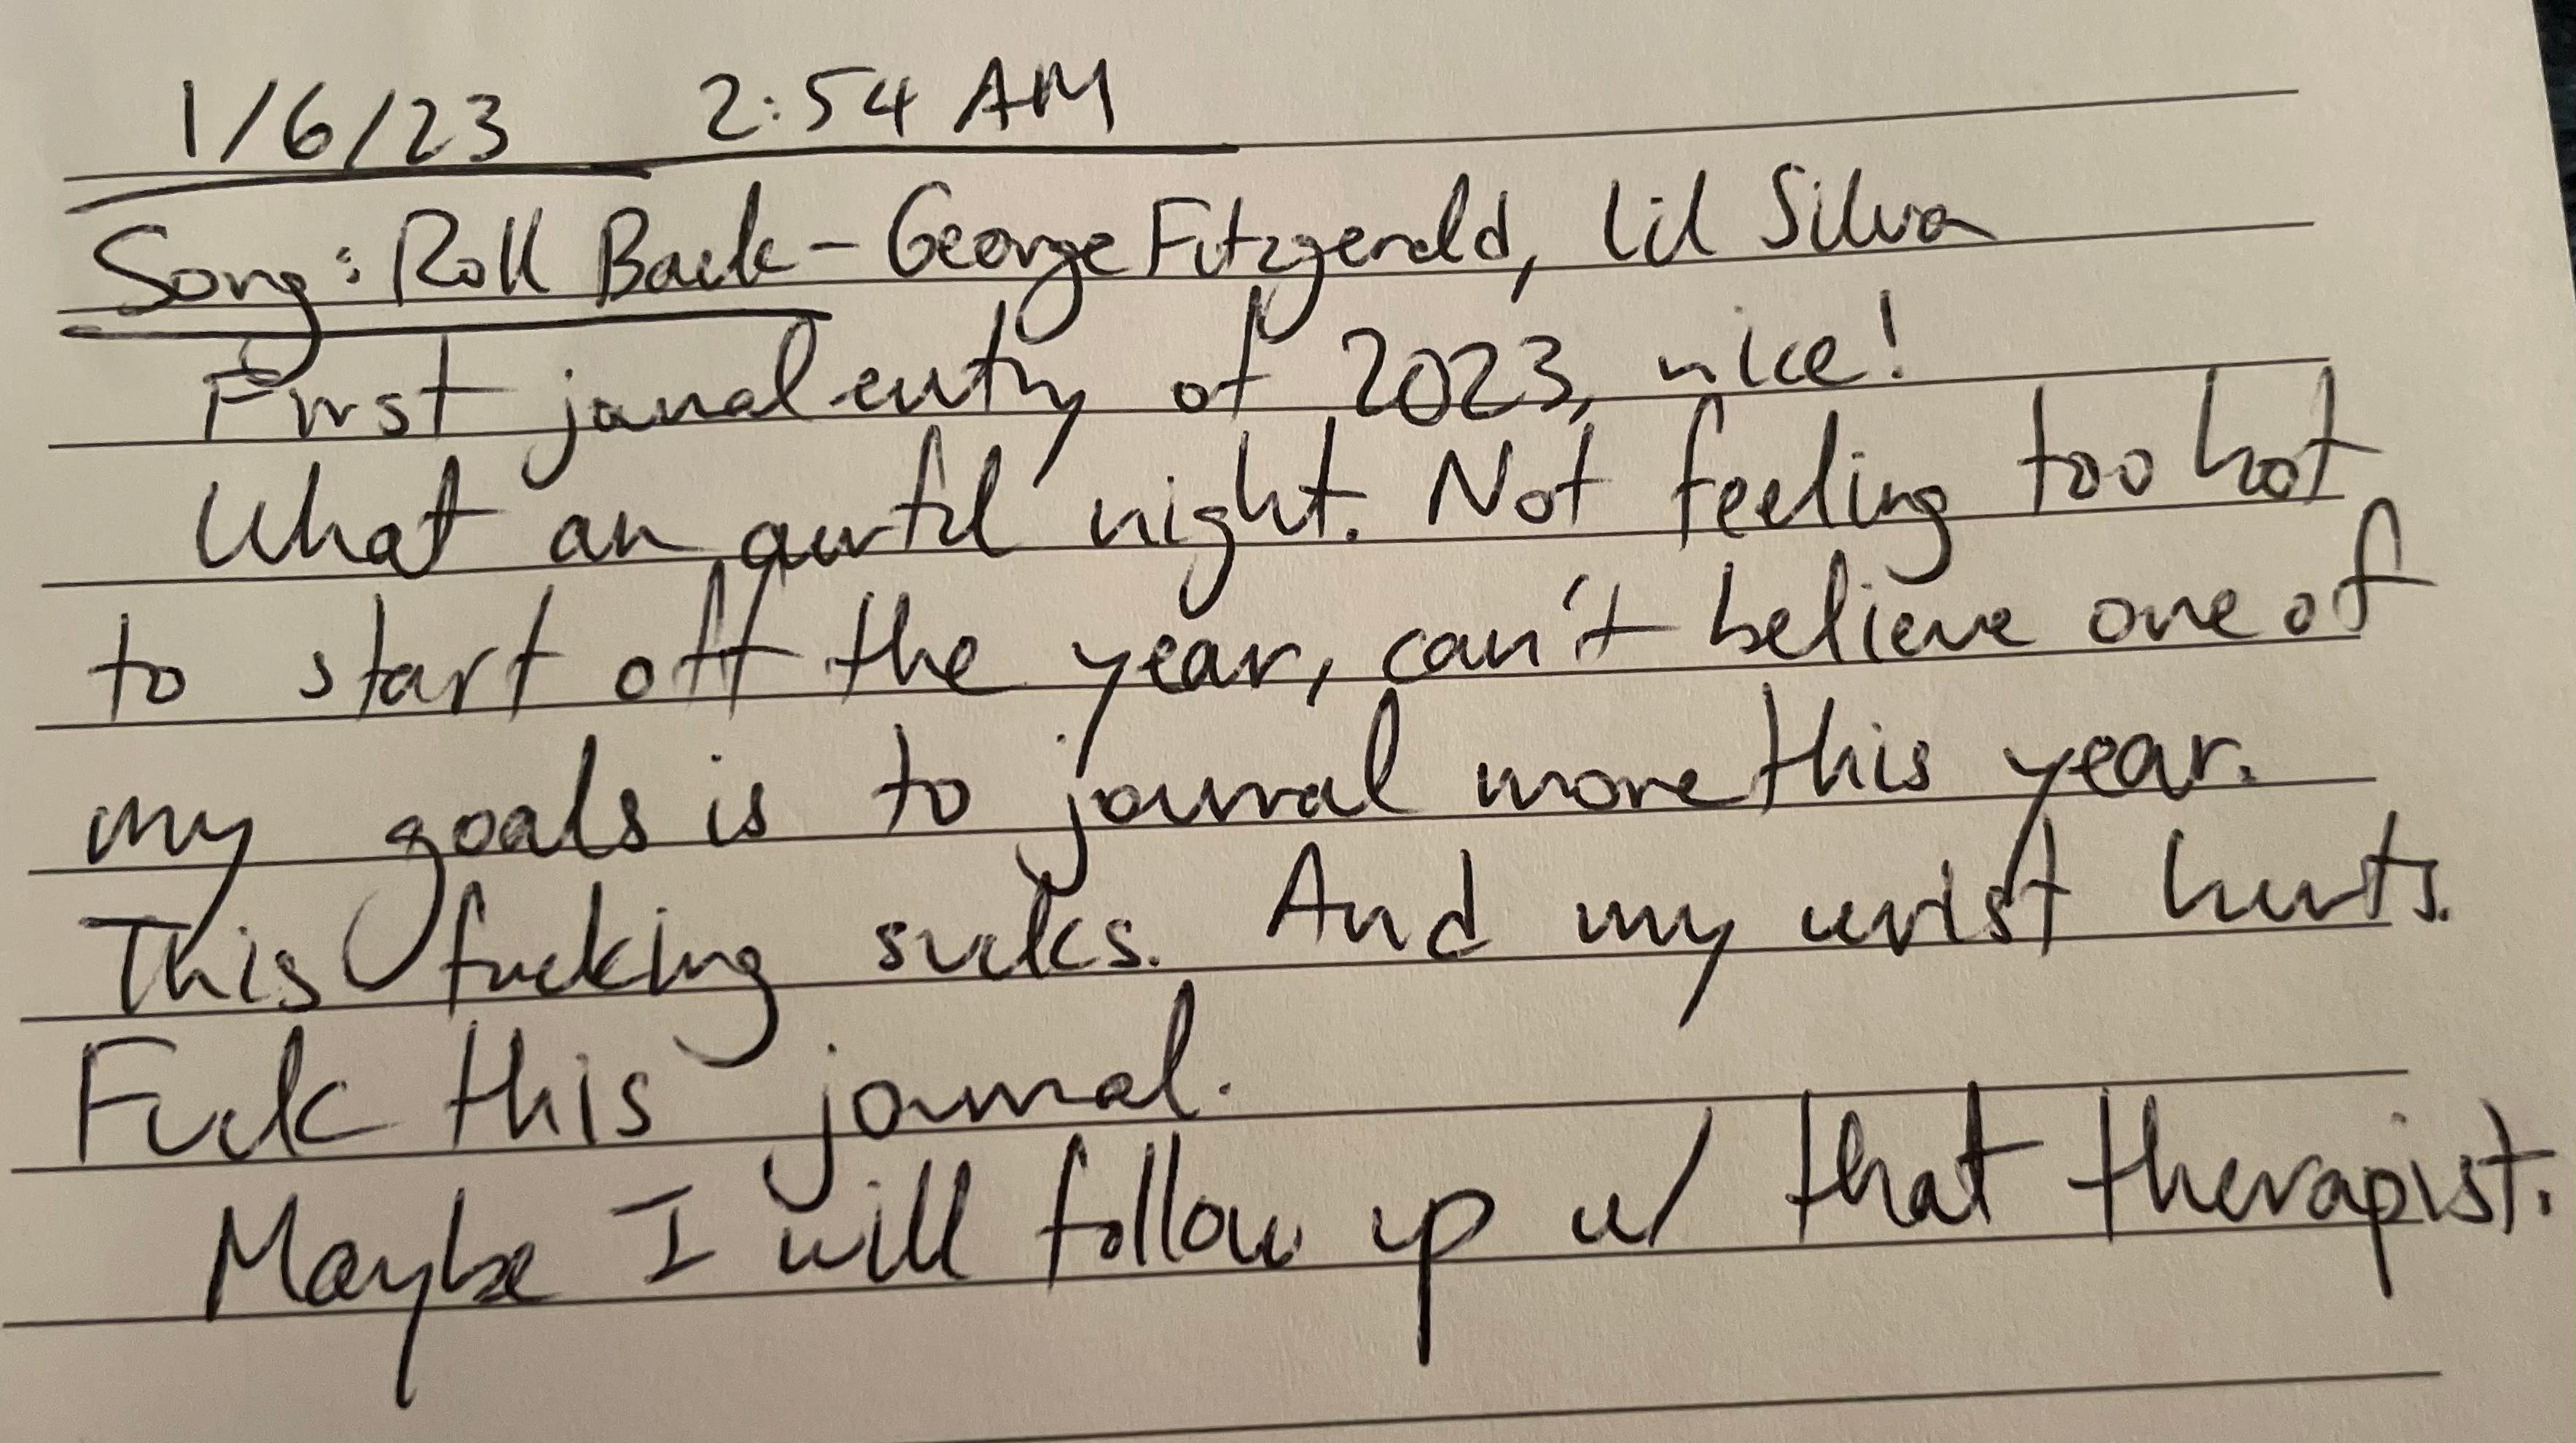 1/6/23 2:54 AM
Song: Roll Back - George Fitzgerald, Lil Silva
First jounal entry of 2023, nice!
What an awful night. Not feeling too hot
to start off the year, can't believe one of
my goals is to journal more this year.
This fucking sucks. And my wrist hurts.
Fuck this journal.
Maybe I will follow up w/ that therapist.